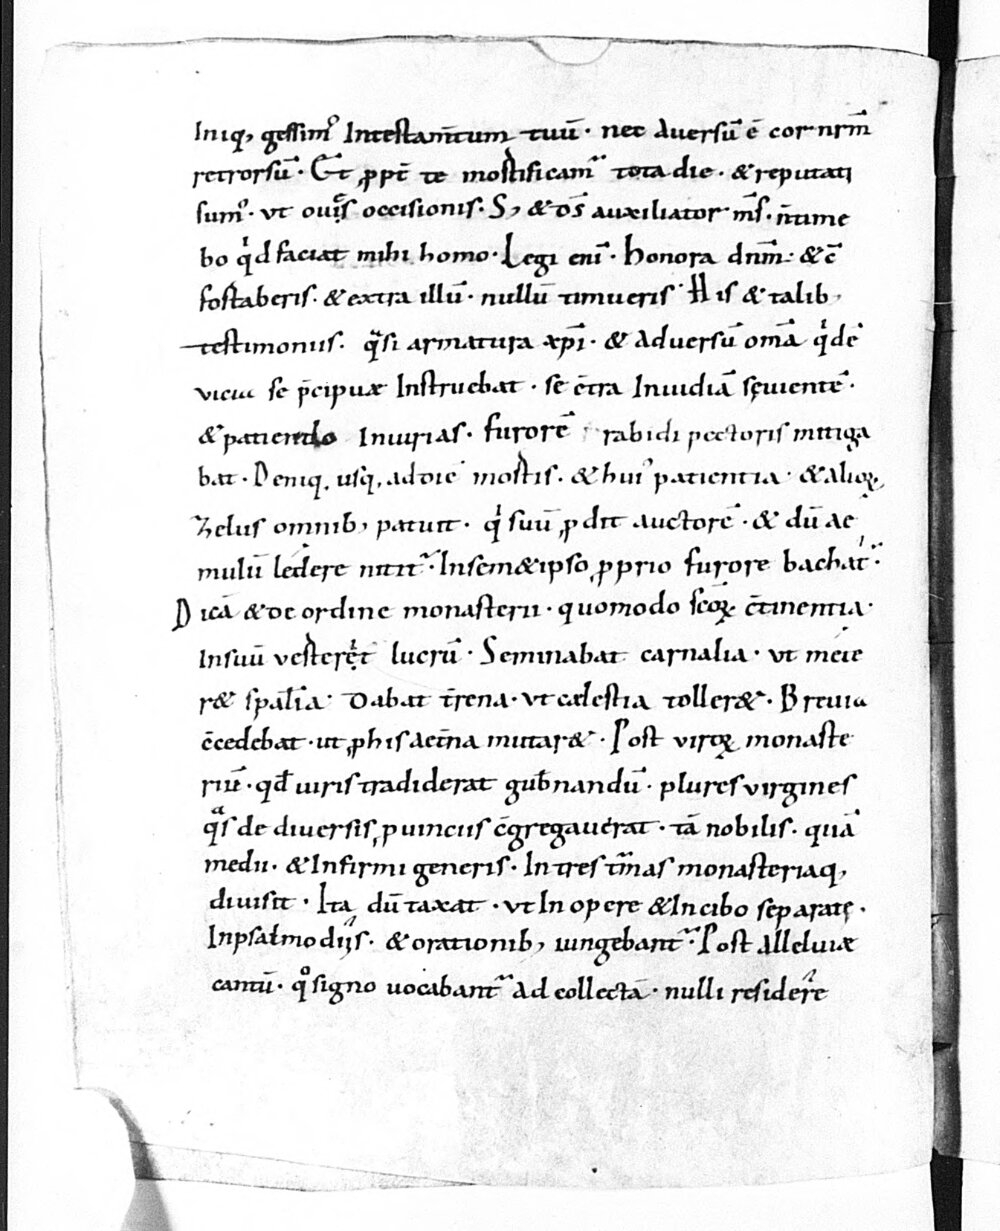 Iniq; gessimꝰ Intestam̄tum tuū· nec aversū ē cor nr̄m
retrorsū· Et ꝓpt̄ te mortificam᷑ tota die· & reputati
sumꝰ· ut ouęs occisionis· S; & ds̄ auxiliator ms̄· n̄ time
bo qͥd faciat mihi homo· Legi eni᷑· honora dnm̄· & c̄
fortaberis· & extra illū· nullū timueris· His & talib;
testimoniis· qͣsi armatura xp̄i· & Adversū omīa qͥdē
vicia se p̄cipuae Instruebat· se c̄tra Inuidiā sęuientē·
& patiendo Iniurias· furorē rabidi pectoris mitiga
bat· Deniq; usq; ad diē mortis· & huiꝰ patientia· & alioꝝ
Zelus omnib; patuit· qͥ suū ꝓdit auctorē· & dū ae
mulū ledere nitit᷑· In sem&ipso ꝓprio furore bachat᷑·
Dicā & de ordine monasterii· quomodo sc̄oꝝ c̄tinentia·
In suū verteręt lucrū· Seminabat carnalia· ut mete
r& sp̄alia· Dabat t̄rena· ut caelestia toller&· Brevia
c̄cedebat· ut ꝓ his aet̄na mutar&· Post viroꝝ monaste
riū· qd̄ uiris tradiderat gub̄nandū· plures virgines
qͣs de diversis ꝓuinciis c̄gregaverat· tā nobilis· quā
medii· & Infirmi generis· In tres tm̄as monasteriaq;
divisit· Ita dū taxat· ut In opere & In cibo separatę·
In psalmodiis· & orationib; iungebant᷑· Post alleluiae
cantū· qͦ signo uocabant᷑ ad collectā· nulli residere